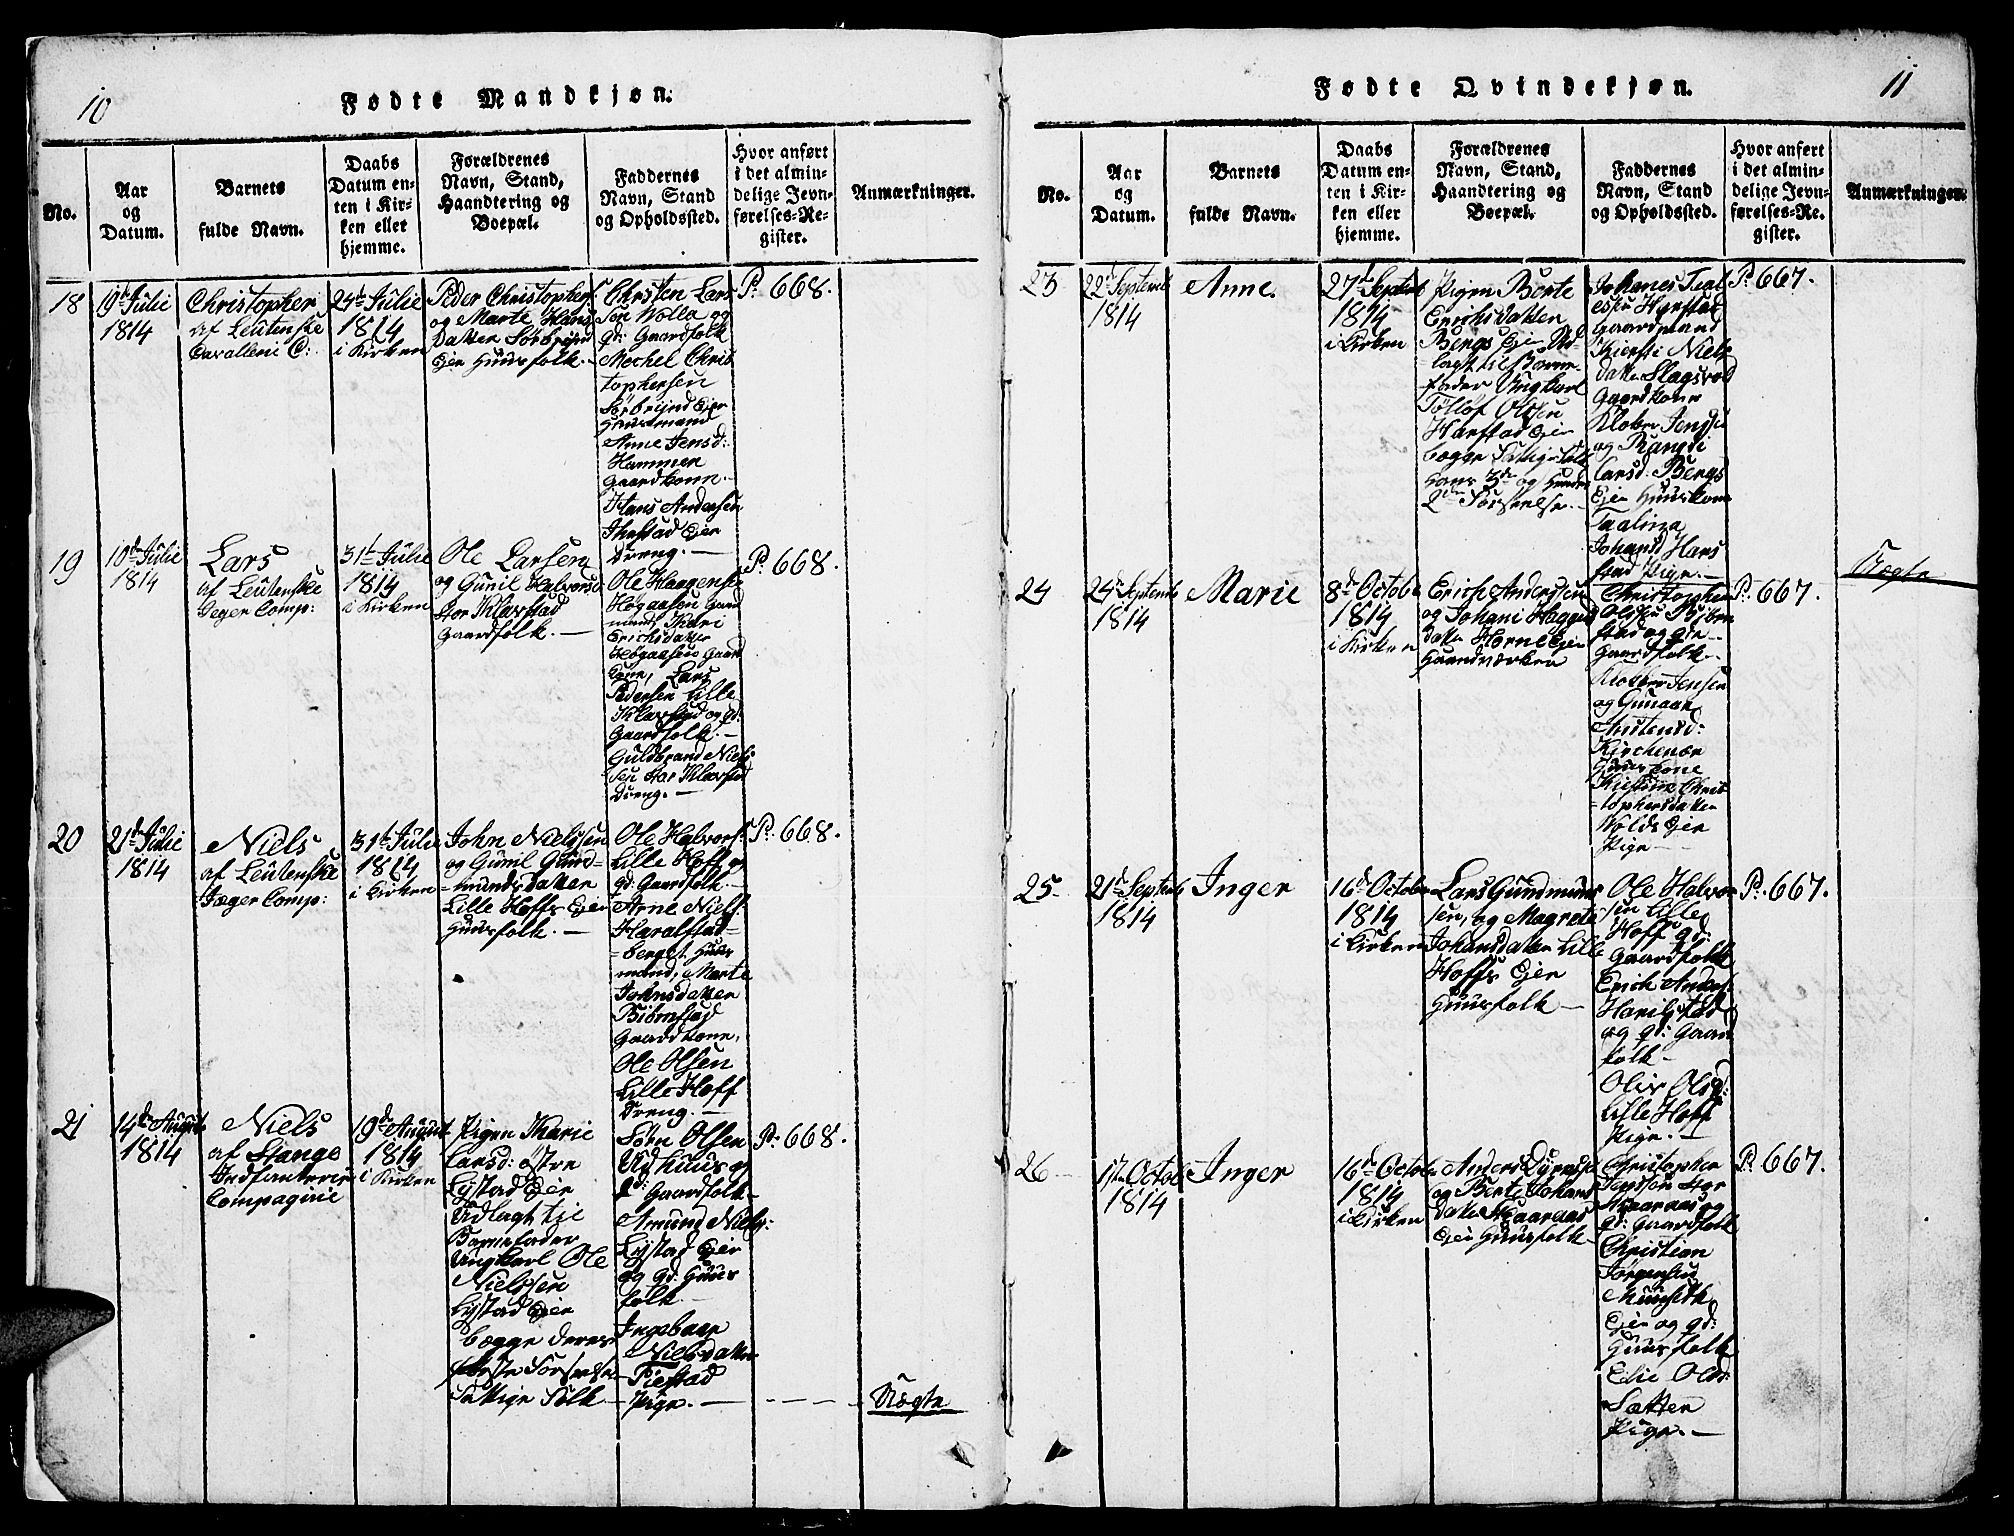 10
Fødte Mandkjøn.
No.
Aar
og
Datum.
Barnets
fulde Navn.
Daabs
Datum en-
ten i Kir-
ken eller
hjemme.
Forældrenes
Navn, Stand,
Haandtering og
Boepæl.
Faddernes
Navn, Stand
og Opholdssted.
Hvor anført
i det almin-
delige Jevn-
førelses-Re-
gister.
Anmærkninger.
18
19de Julie
1814
Christopher
af Leutenske
Cavallerie C:
24de Julie
1814
i Kirken
Peder Christophers:
og Marte Hans
Datter Sørbrijnd
Ejer Huusfolk.
Chrsten Lars
Søn Wolla og
gd: Gaardfolk
Mechel Chris
tophersen
Sørbrijnd Ejer
Huusmand
Anne Jensd:
Hammen
Gaardkonn.
Hans Andersen
Ejer
Dreng.
P. 668.
19
10de Julie
1814
Lars
af Leutenske
Jeger Comp:
31te Julie
1814
i Kirken
Ole Larsen
og Gunil Halvorsd
Stor Klavstad
Gaardfolk.
Ole Haagense
Høgaasen Gaard
mand, Kari
Erichsdatter
Høgaasen Gaard
Kone, Lars
Pedersen Lille
Klavstad og gd:
Gaardfolk.
Guldbrand Niels
sen Stor Klavstad
Dreng.
P. 668.
20
21de Julie
1814
Niels
af Leutenske
Jæger Comp:
31te Julie
1814
i Kirken
John Nielssen
og Gunil Gund-
-mundsdatter
Lille Hoffs Ejer
Huusfolk.
Ole Halvors:
Lille Hoff og
gd: Gaardfolk
Arne Niels:
Haralstad-
-berget Huus
mand, Marte
Johnsdatter
Biørnstad
Gaardkone,
Ole Olsen
Lille Hoff
Dreng.
P. 668.
21
14de August
1814
Niels
af Stange
Indfanterie
Compagnie
19de August
1814
i Kirken
Pigen Marie
Larsd: østre
Lystad Ejer
Udlagt til
Barnefader
Ungkarl Ole
Nielssen
Lystad Ejer
begge deres
første Forseelse
Sattige Folk
Sørn Olsen
Udhuus og
gd: Gaardfolk
Amund Niels:
Lystad Ejer
og gd: Huus
folk
Ingebaar
Nielsdatter
Fiestad
Pige.
P. 668.
Uægte
11
Fødte Qvindekjøn.
No.
Aar
og
Datum.
Barnets
fulde Navn.
Daabs
Datum en-
ten i Kir-
ken eller
hjemme.
Forældrenes
Navn, Stand,
Haandtering og
Boepæl.
Faddernes
Navn, Stand
og Opholdssted.
Hvor anført
i det almin-
delige Jevn-
førelses-Re-
gister.
Anmærkninger.
23
22de Septemb
1814
Anne.
27de Septemb
1814
i Kirken
Pigen Berte
Erichsdatter
Bergs Ejer Ud-
lagt til Barne
fader Ungkarl
Tolløf Olssen
Harstad Ejer
begge
hans 3de og hendes
2den Forseelse.
Johanes
Harstad
Gaardmand
Kiersti Niels
datter Slagsvold
Gaardkone
Jenssen
og Rangdi
Larsd: Bergs
Ejer Huuskone
Taalina
Johansd Hars
stad Pige.
P. 667.
Uægte
24
24de Septemb
1814
Marie
8de Octobe
1814
i Kirken
Erich Anderssen
og Johani Hagens
datter Horne Ejer
Haandværker
Christopher
Olssen Biørn
stad og
Gaardfolk
Jensen
og Gunaar
Arstensd:
Kirchenær
Huuskone
Kistine Chris
-tophersdatter
Wolds Ejer
Pige
P. 667.
25
21de Septemb
1814
Inger
16de October
1814
i Kirken
Lars Gundmuns
sen, og Magrete
Johansdatter Lille
Hoffs Ejer
Huusfolk
Ole Halvor
sen Lille
Hoff gd:
Gaardfolk
Erich Anders:
Harilstad
og gd: Gaard
folk
Olis Olsd:
Lille Hoff
Pige.
P. 667.
26
1ste Octobe
1814
Inger
16de Octobe
1814
i Kirken
Anders
og Berte Johans
datter Haaraas
Ejer Huusfolk
Christopher
Stor
Haaraas og
gd: Gaardfolk
Christian
Jørgensen
Ejer og gd:
Huusfolk
Elie Olsd:
Sætter
Pige.
P. 667.